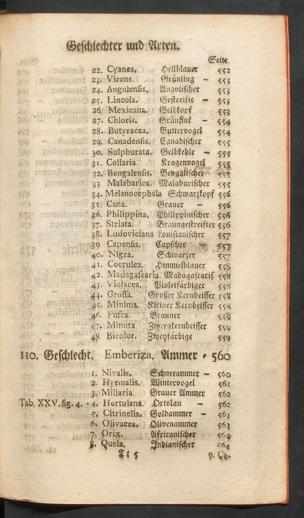 Geschlechter und Arten.
Seite
22. Cyanea. Hellblauer 552
23. Virens. Grünling - 553
24. Angolensis. Angolischer 553
25. Lincola. Gestreifte - 553
26. Mexicana. Gelbkopf 553
27. Chloris. Grünfink - 554
28. Butyracea. Buttervogel 554
29. Canadensis. Canadischer 555
30. Sulphurata. Gelbkehle - 555
31. Collaria. Kragenvogel 555
32. Bengalensis. Bengalischer 555
33 Malabarica. Malabarischer 555
34. Melanocephala Schwarzkopf 556
35. Cana. Grauer - 556
36. Philippina. Philippinischer 556
37. Striata. Braungestreifter 556
38. Ludoviciana Louisianischer 557
39 Capensis. Capscher - 557
40. Nigra. Schwarzer 557
41. Coerulea. Himmelblauer 558
42. Madagascaria. Madagascaris 558
43. Violacea. Violetfärbiger 558
44. Grossa. Großer Kernbeisser 558
45. Minima. Kleiner Kernbeisser 558
46. Fusca. Brauner 559
47. Minuta Zwergkernbeisser 559
48 Bicolor. Zweyfärbige 559
110. Geschlecht. Emberiza. Ammer - 560
1. Nivalis. Schneeammer - 560
2. Hyemalis. Wintervogel 561
3. Miliaria. Grauer Ammer 562
Tab. XXV. fig. 4. - 4. Hortulana Ortolan - 562
5. Citrinella. Goldammer - 563
6. Olivacea. Olivenammer 563
7. Orix. Africanischer 564
8. Quela. Indianischer 564
9. Ca-